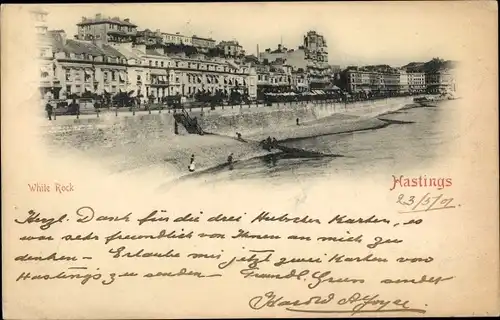 White Rock
Hastings
23/5/01
Herzl. Dank für die drei hübschen Karten, es
war sehr freundlich von Ihnen an mich zu
denken – Erlaube mir jetzt zwei Karten von
Hastings zu senden – Freundl. Gruss sendet
Harold A Joyce